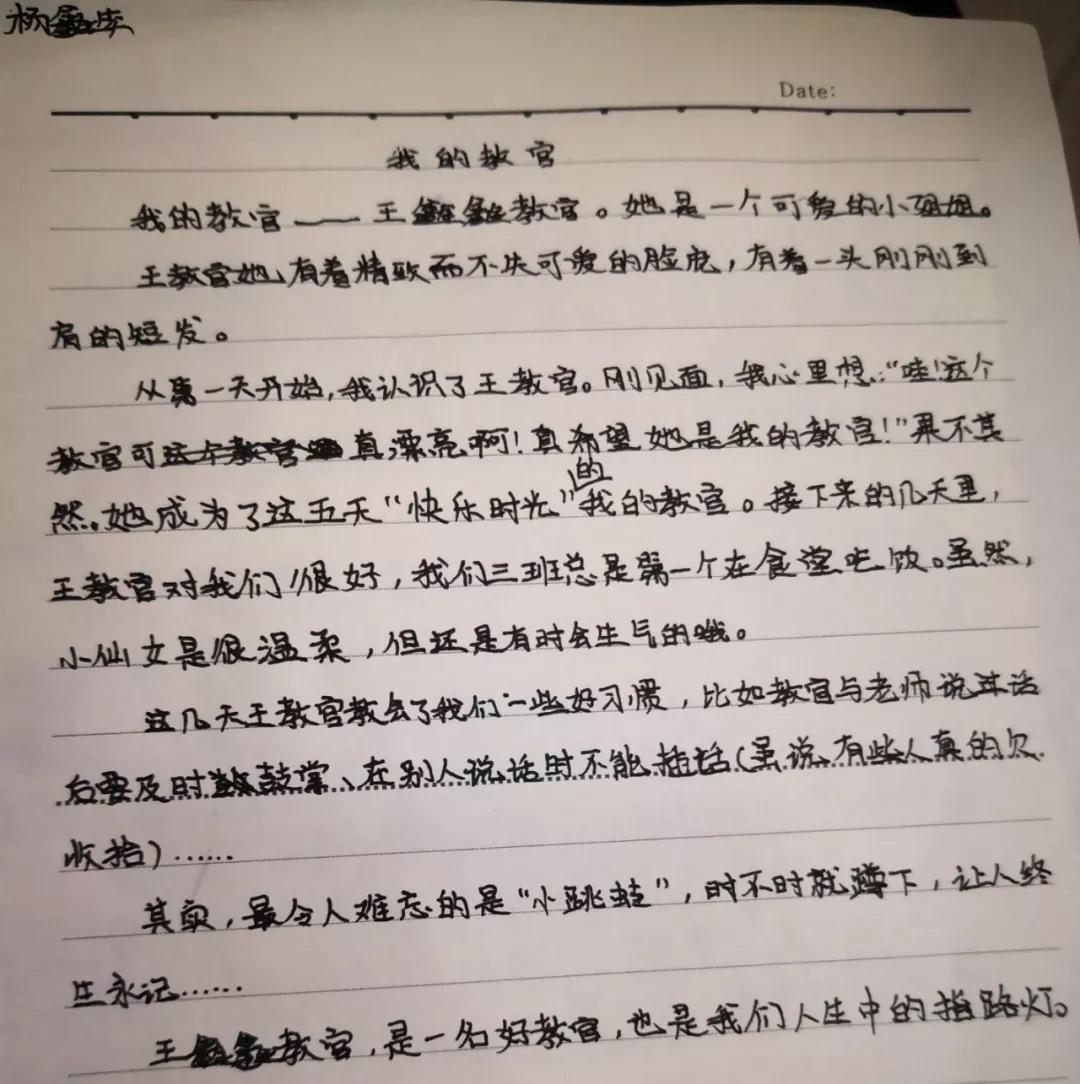 杨鑫华
Date:
我的教官
我的教官——王鑫鑫教官。她是一个可爱的小姐姐。
王教官她有着精致而不失可爱的脸庞，有着一头刚刚到
肩的短发。
从第一天开始，我认识了王教官。刚见面，我心里想：“哇！这个
教官可真漂亮啊！真希望她是我的教官！”果不其
然。她成为了这五天“快乐时光”的我的教官。接下来的几天里，
王教官对我们很好，我们三班总是第一个在食堂吃饭。虽然，
小仙女是很温柔，但还是有时会生气的哦。
这几天王教官教会了我们一些好习惯，比如教官与老师说过话
后要及时鼓掌、在别人说话时不能插话（虽说、有些人真的欠
收拾）……
其实，最令人难忘的是“小跳蛙”，时不时就蹲下，让人终
生永记……
王鑫鑫教官，是一名好教官，也是我们人生中的指路灯。